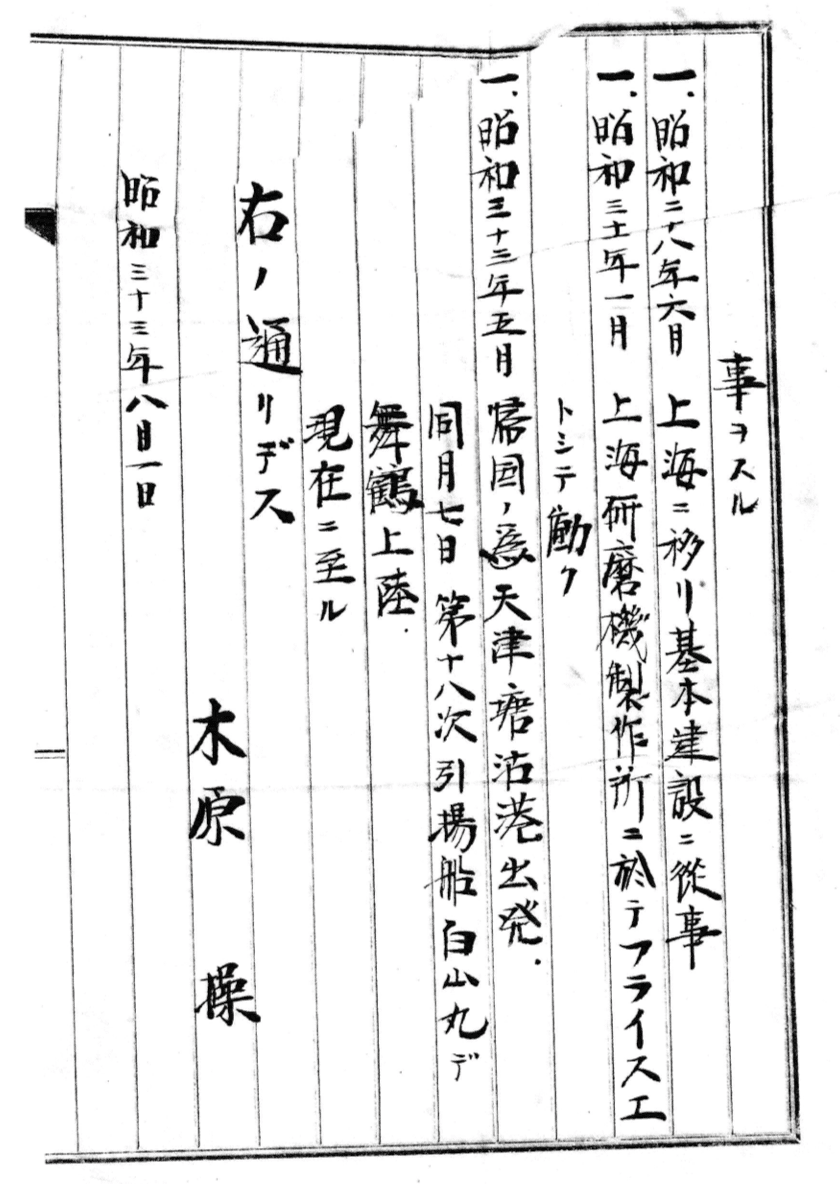 事ヲスル
一、昭和二十八年六月 上海ニ移リ基本建設ニ從事
一、昭和三十一年一月 上海研磨機製作所ニ於テフライス工
トシテ働ク
一、昭和三十三年五月 帰国ノ為天津塘沽港出発.
同月七日 第十八次引揚船白山丸デ
舞鶴上陸.
現在ニ至ル
右ノ通リデス
木原 操
昭和三十三年八月一日